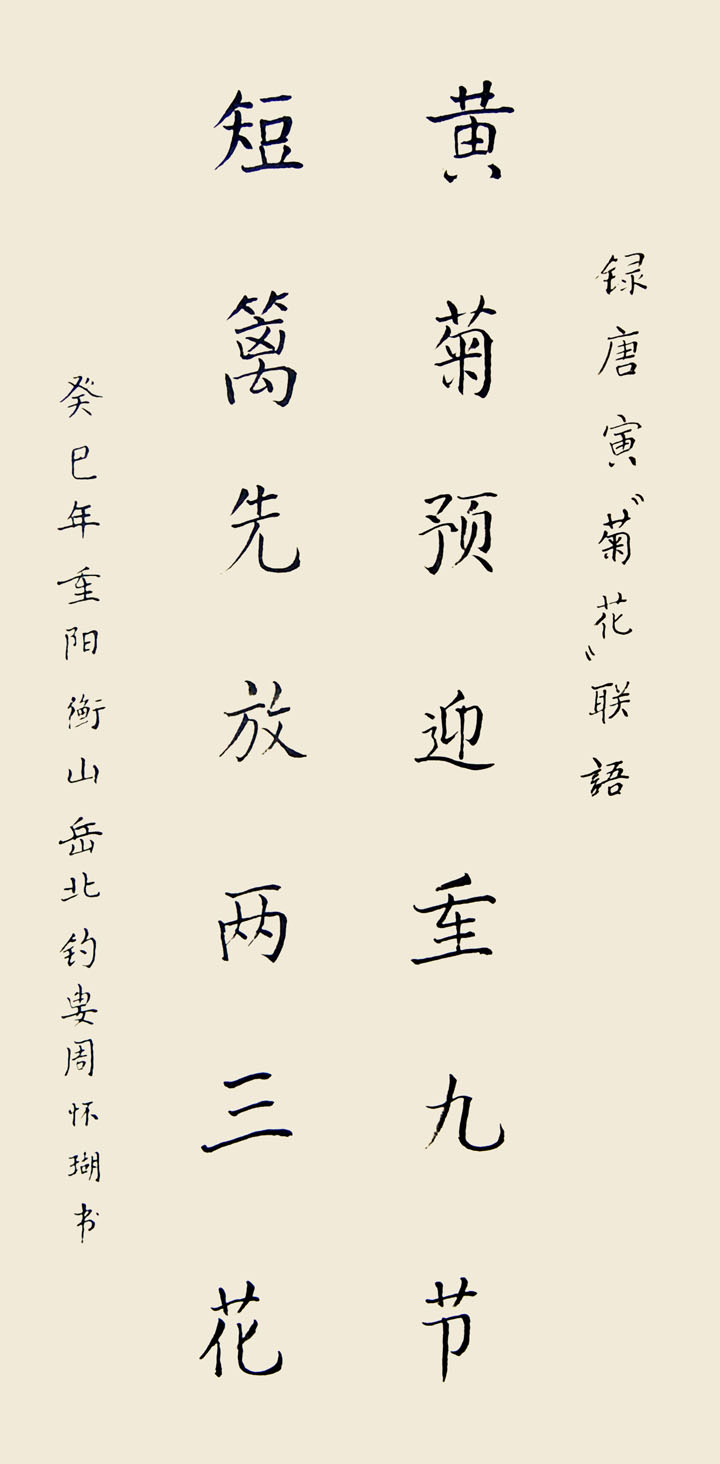 录唐寅“菊花”联語
黄菊预迎重九节
短篱先放两三花
癸巳年重阳衡山岳北钓娄周怀瑚书